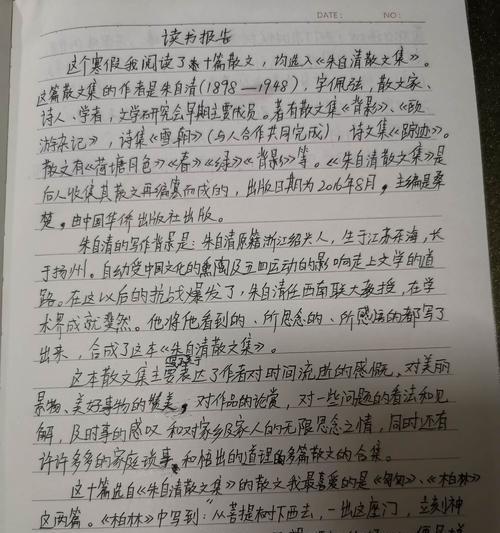 DATE: NO:
读书报告
这个寒假我阅读了十篇散文，均选入《朱自清散文集》。
这篇散文集的作者是朱自清(1898—1948)，字佩弦，散文家、
诗人、学者，文学研究会早期主要成员。著有散文集《背影》、《欧
游杂记》，诗集《雪朝》(与人合作共同完成)，诗文集《踪迹》。
散文有《荷塘月色》《春》《绿》《背影》等。《朱自清散文集》是
后人收集其散文再编纂而成的，出版日期为2016年8月，主编是桑
楚。由中国华侨出版社出版。
朱自清的写作背景是：朱自清原籍浙江绍兴人，生于江苏东海，长
于扬州。自幼受中国文化的熏陶及五四运动的影响走上文学的道
路。在这以后的抗战爆发了，朱自清任西南联大教授，在学
术界成就斐然。他将他看到的、所思念的、所感悟的都写了
出来，合成了这本《朱自清散文集》。
这本散文集主要表达了作者对时间流逝的感慨、对美丽
景物、美好事物的赞美，对作品的论赏，对一些问题的看法和见
解，及时事的感叹和对家乡及家人的无限思念之情，同时还有
许许多多的家庭琐事和悟出的道理的多篇散文的合集。
这十篇选自《朱自清散文集》的散文我最喜爱的是《匆匆》、《柏林》
这两篇。《柏林》中写到：从菩提树下西去，一出这座门，立刻神